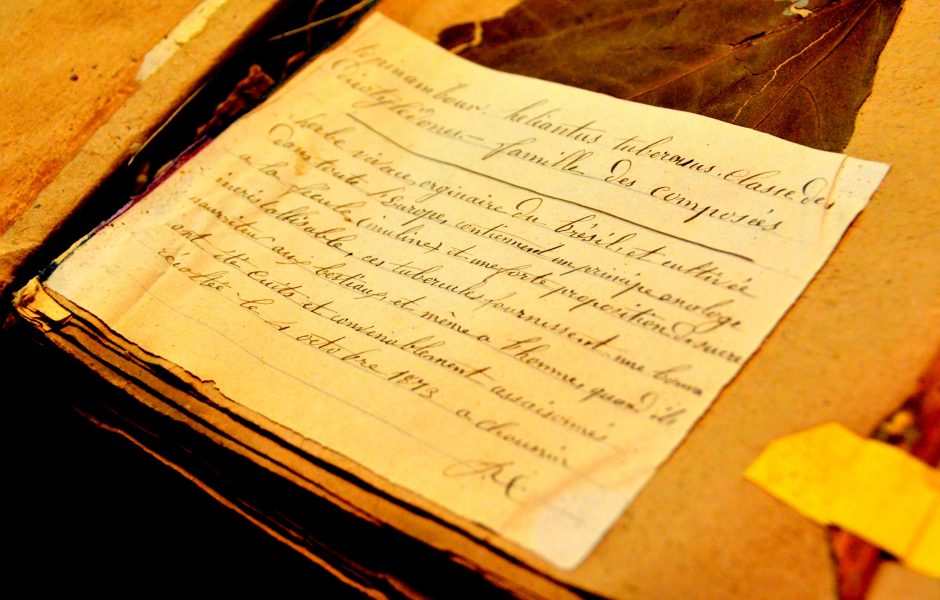 Topinambour heliantus tuberosus. Classe des
Dicotylédones = famille des composées
herbe vivace, originaire du brésil et cultivée
Dans toute l'Europe, contiennent un principe analoge
a la fécule (inuline) et une forte proposition de sucre
incristallisable, ces tubercules fournissent une bonne
nourriture aux bestiaux, et même a l'homme, quand ils
ont été cuits et convenablement assaisonnés
récoltée le 4 octobre 1873 a